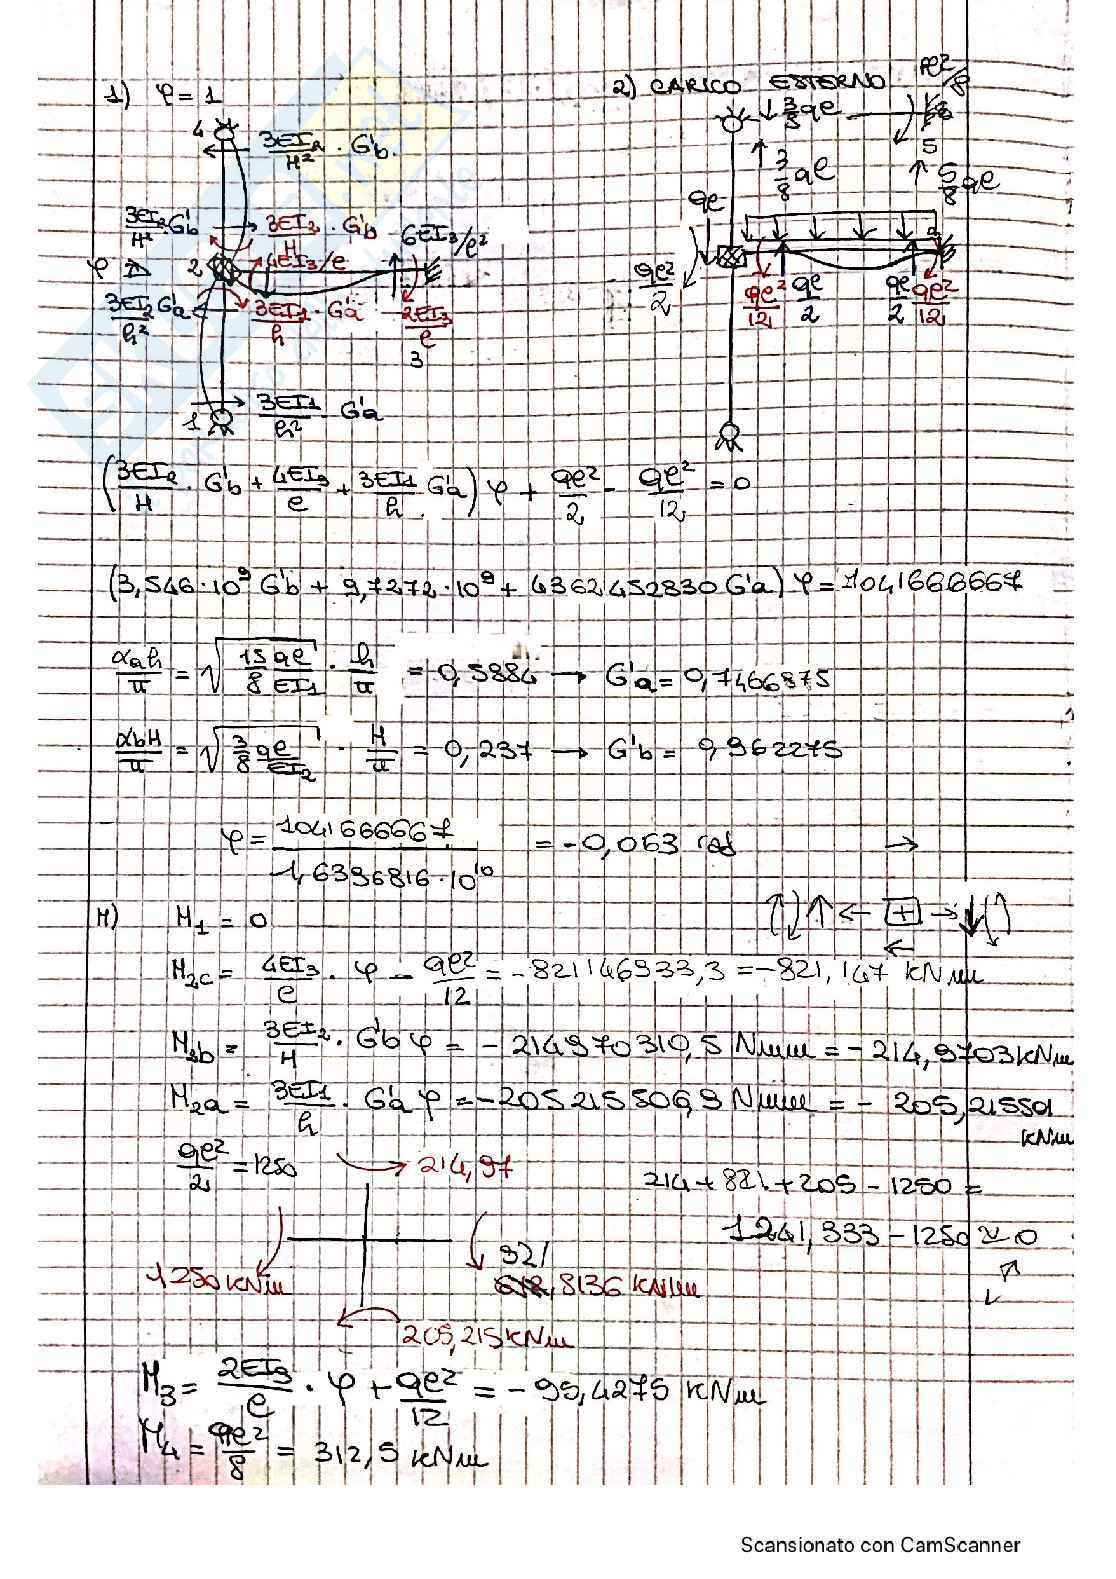 1) φ = 1
2) CARICO ESTERNO
4
3EI₂/H² · G'b
3/8 qe
qe²/8
3/8 qe
5
5/8 qe
3EI₂/H² G'b
3EI₂/H · G'b
6EI₃/e²
qe
φ
2
4EI₃/e
qe²/2
3EI₁/h² G'a
3EI₁/h · G'a
2EI₃/e
3
qe²/12
qe/2
qe/2
qe²/12
1
3EI₁/h² G'a
(3EI₂/H · G'b + 4EI₃/e + 3EI₁/h G'a) φ + qe²/2 - qe²/12 = 0
(3,546·10⁹ G'b + 9,7272·10⁹ + 4362452830 G'a) φ = 1041666667
αah/π = √(15/8 qe/EI₁) · h/π = 0,5884 → G'a = 0,7466875
αbH/π = √(3/8 qe/EI₂) · H/π = 0,237 → G'b = 0,962275
φ = 1041666667 / 1,6396816·10¹⁰ = -0,063 rad →
M) M₁ = 0
M₂c = 4EI₃/e · φ - qe²/12 = -821146933,3 = -821,147 kNm
M₂b = 3EI₂/H · G'b φ = - 214970310,5 Nmm = - 214,9703 kNm
M₂a = 3EI₁/h · G'a φ = -205215506,9 Nmm = - 205,215501 kNm
qe²/2 = 1250
214,97
214 + 821 + 205 - 1250 =
1241,333 - 1250 ≃ 0
1250 kNm
,8136 kNm
205,215 kNm
M₃ = 2EI₃/e · φ + qe²/12 = - 95,4275 kNm
M₄ = qe²/8 = 312,5 kNm
Scansionato con CamScanner